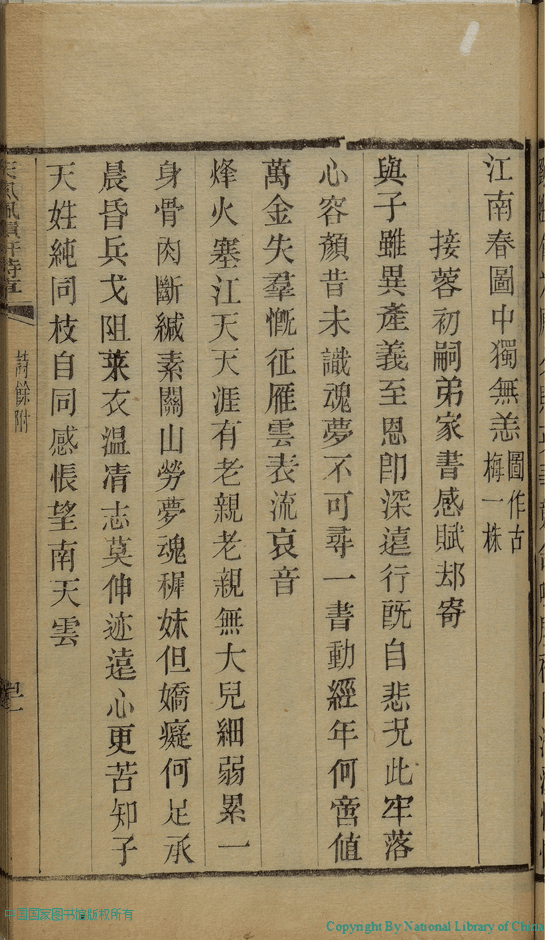 江南春圖中獨無恙圖作古梅一株
接蓉初嗣弟家書感賦却寄
與子雖異產義至恩卽深遠行旣自悲況此牢落
心容顏昔未識魂夢不可尋一書動經年何啻値
萬金失羣慨征雁雲表流哀音
烽火塞江天天涯有老親老親無大兒細弱累一
身骨肉斷緘素關山勞夢魂穉妹但嬌癡何足承
晨昏兵戈阻萊衣温凊志莫伸迹遠心更苦知子
天姓純同枝自同感悵望南天雲
詩餘附
中国国家图书馆版权所有
Copyright By National Library of China